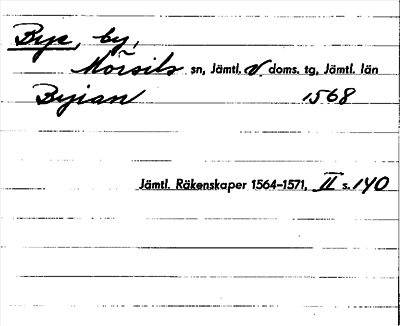 Bye, by,
Mörsils sn, Jämtl. V doms. tg, Jämtl. län
Byian 1568
Jämtl. Räkenskaper 1564-1571, II s. 140